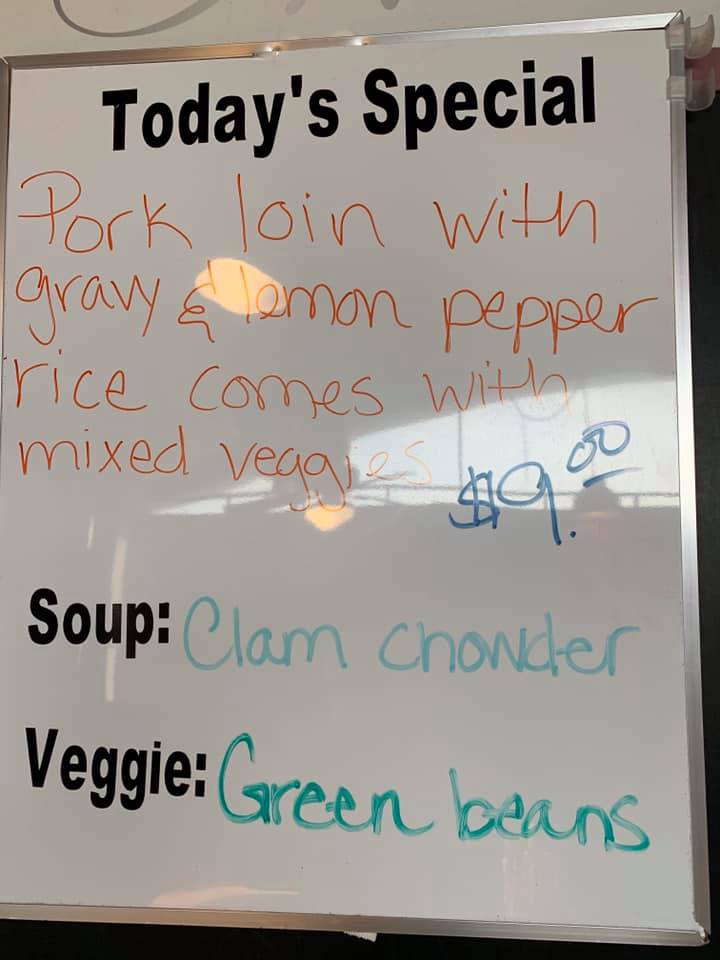 Today's Special
Pork loin with
gravy & lemon pepper
rice comes with
mixed veggies $9.00
Soup: Clam chowder
Veggie: Green beans